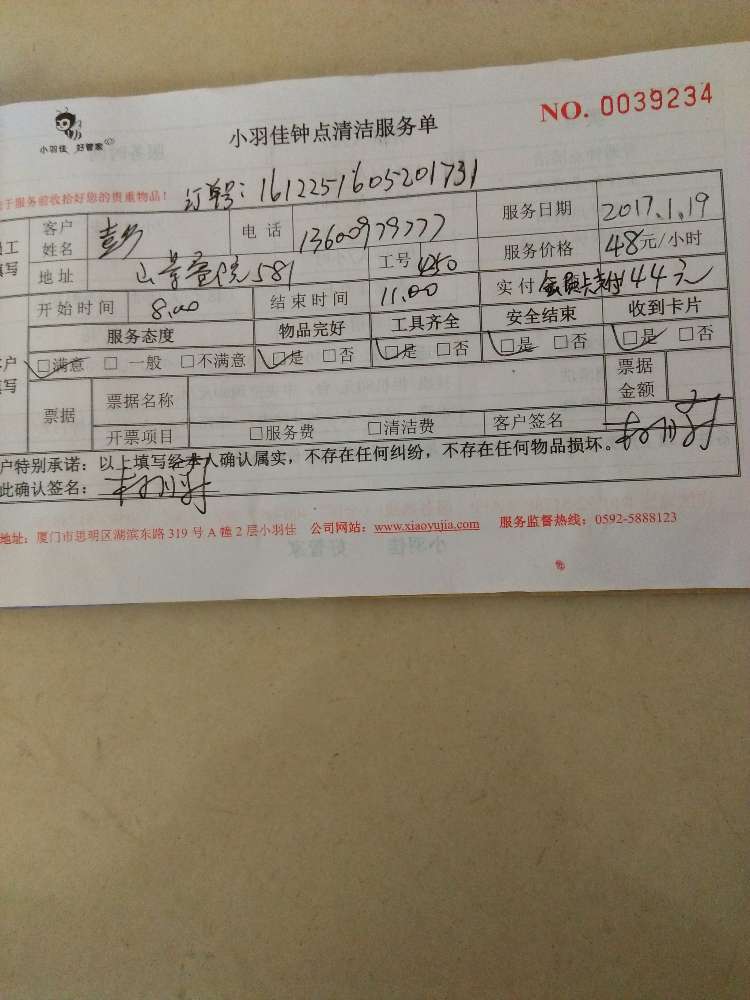 小羽佳 好管家
小羽佳钟点清洁服务单
NO. 0039234
于服务前收拾好您的贵重物品!
订单号:1612251605201731
员工填写
客户姓名
电话 13600979777
服务日期 2017.1.19
地址 581
工号 4250
服务价格 48元/小时
开始时间 8.00
结束时间 11.00
实付 44元
客户填写
服务态度 物品完好 工具齐全 安全结束 收到卡片
□满意 □一般 □不满意 □是 □否 □是 □否 □是 □否 □是 □否
票据 票据名称 票据金额
开票项目 □服务费 □清洁费 客户签名
户特别承诺:以上填写经本人确认属实,不存在任何纠纷,不存在任何物品损坏。
此确认签名:
地址:厦门市思明区湖滨东路 319 号 A 幢 2 层小羽佳 公司网站:www.xiaoyujia.com 服务监督热线:0592-5888123